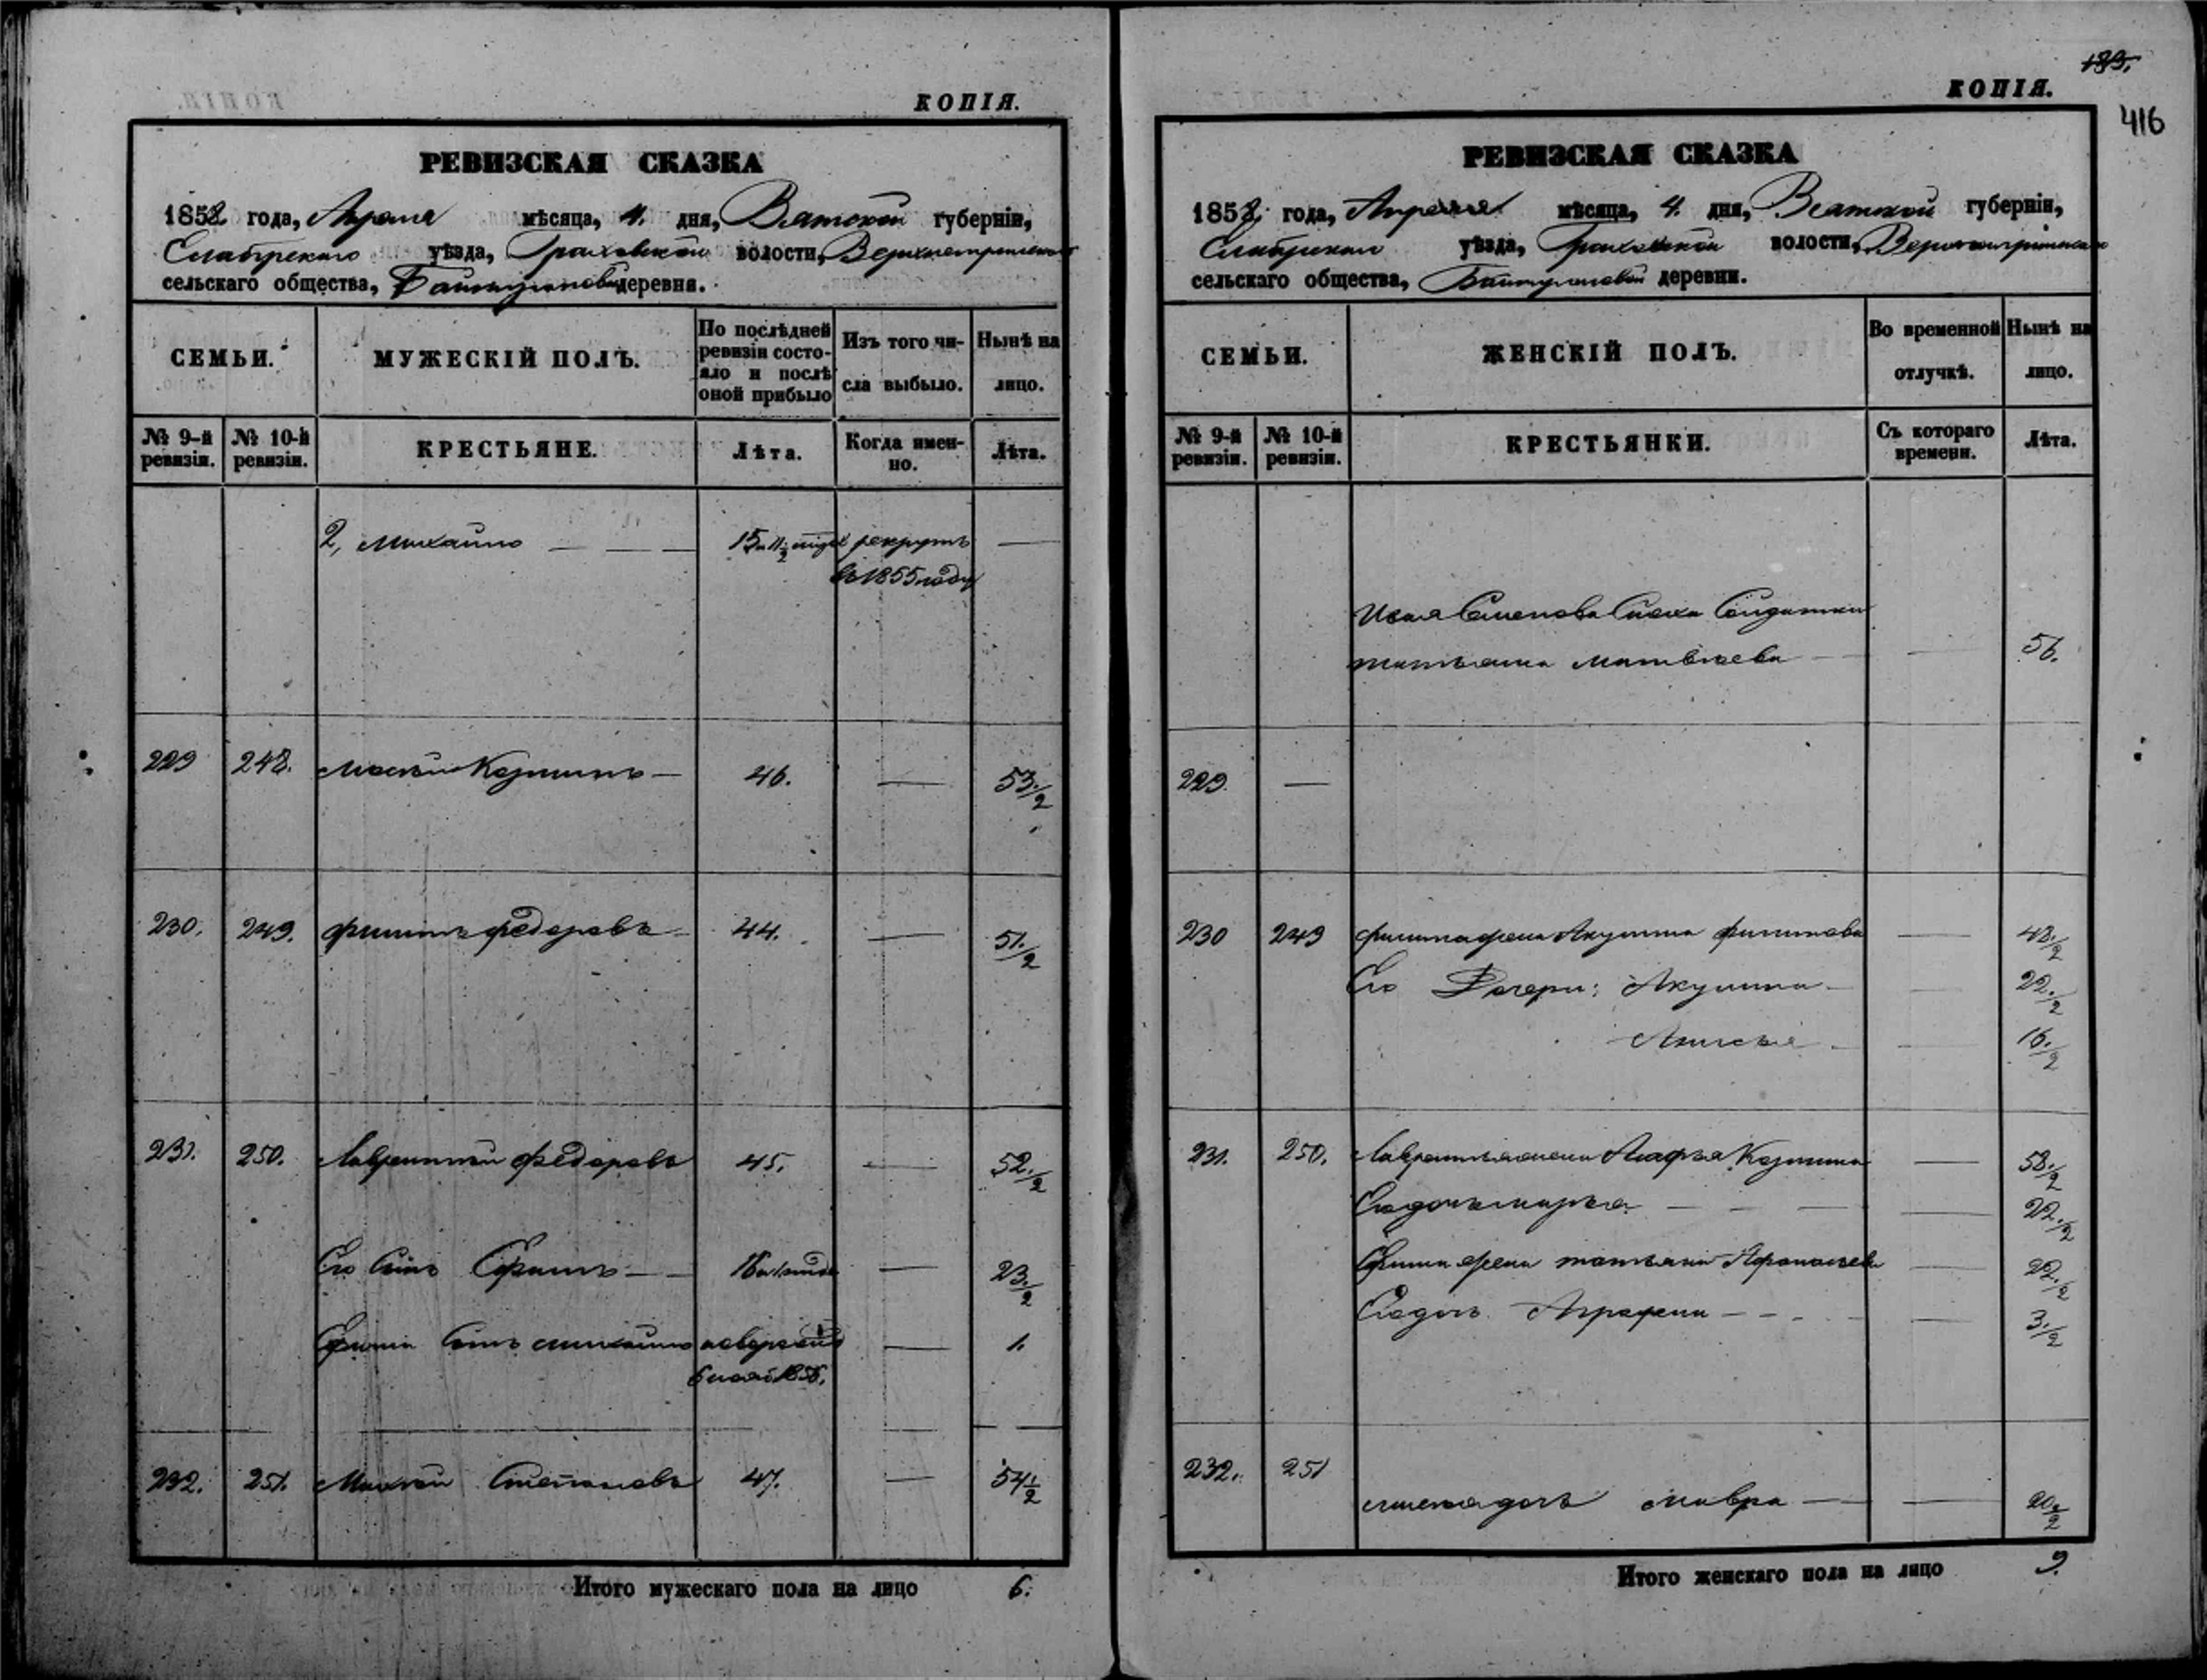 КОПІЯ.
РЕВИЗСКАЯ СКАЗКА
1858 года, Апреля мѣсяца, 4. дня, Вятской губерніи,
Елабужскаго уѣзда, Граховской волости,
сельскаго общества, деревни.
СЕМЬИ.
МУЖЕСКІЙ ПОЛЪ.
По послѣдней ревизіи состояло и послѣ оной прибыло
Изъ того числа выбыло.
Нынѣ на лицо.
№ 9-й ревизіи.
№ 10-й ревизіи.
КРЕСТЬЯНЕ.
Лѣта.
Когда именно.
Лѣта.
2, Михайло — — — 15 рекрутъ —
въ 1855 году
229 248. Козминъ — 46. — 53 1/2
230. 249. Филипъ Федоровъ 44. — 51 1/2
231. 250. Лаврентий Федоровъ 45. — 52 1/2
Его Сынъ Ефимъ — — 16 — 23 1/2
Ефима Сынъ Михайло — 1.
232. 251. Степановъ 47. — 54 1/2
Итого мужескаго пола на лицо 6.
189.
КОПІЯ.
416
РЕВИЗСКАЯ СКАЗКА
1858 года, Апреля мѣсяца, 4. дня, Вятской губерніи,
Елабужскаго уѣзда, Граховской волости,
сельскаго общества, деревни.
СЕМЬИ.
ЖЕНСКІЙ ПОЛЪ.
Во временной отлучкѣ.
Нынѣ на лицо.
№ 9-й ревизіи.
№ 10-й ревизіи.
КРЕСТЬЯНКИ.
Съ котораго времени.
Лѣта.
Семенова Солдатка
Татьяна Матвѣева — — 56.
229. —
230 249 Филипа жена Акулина Филипова —
Его Дочери: Акулина — — 22 1/2
Анисья — — 16 1/2
231. 250. Лаврентья жена Агафья Козмина — 58 1/2
Его дочь Марья — — — — 22 1/2
Ефима жена Татьяна Афанасьева — 22 1/2
Его дочь Аграфена — — — 3 1/2
232. 251
дочь Мавра — — 20 1/2
Итого женскаго пола на лицо 9.